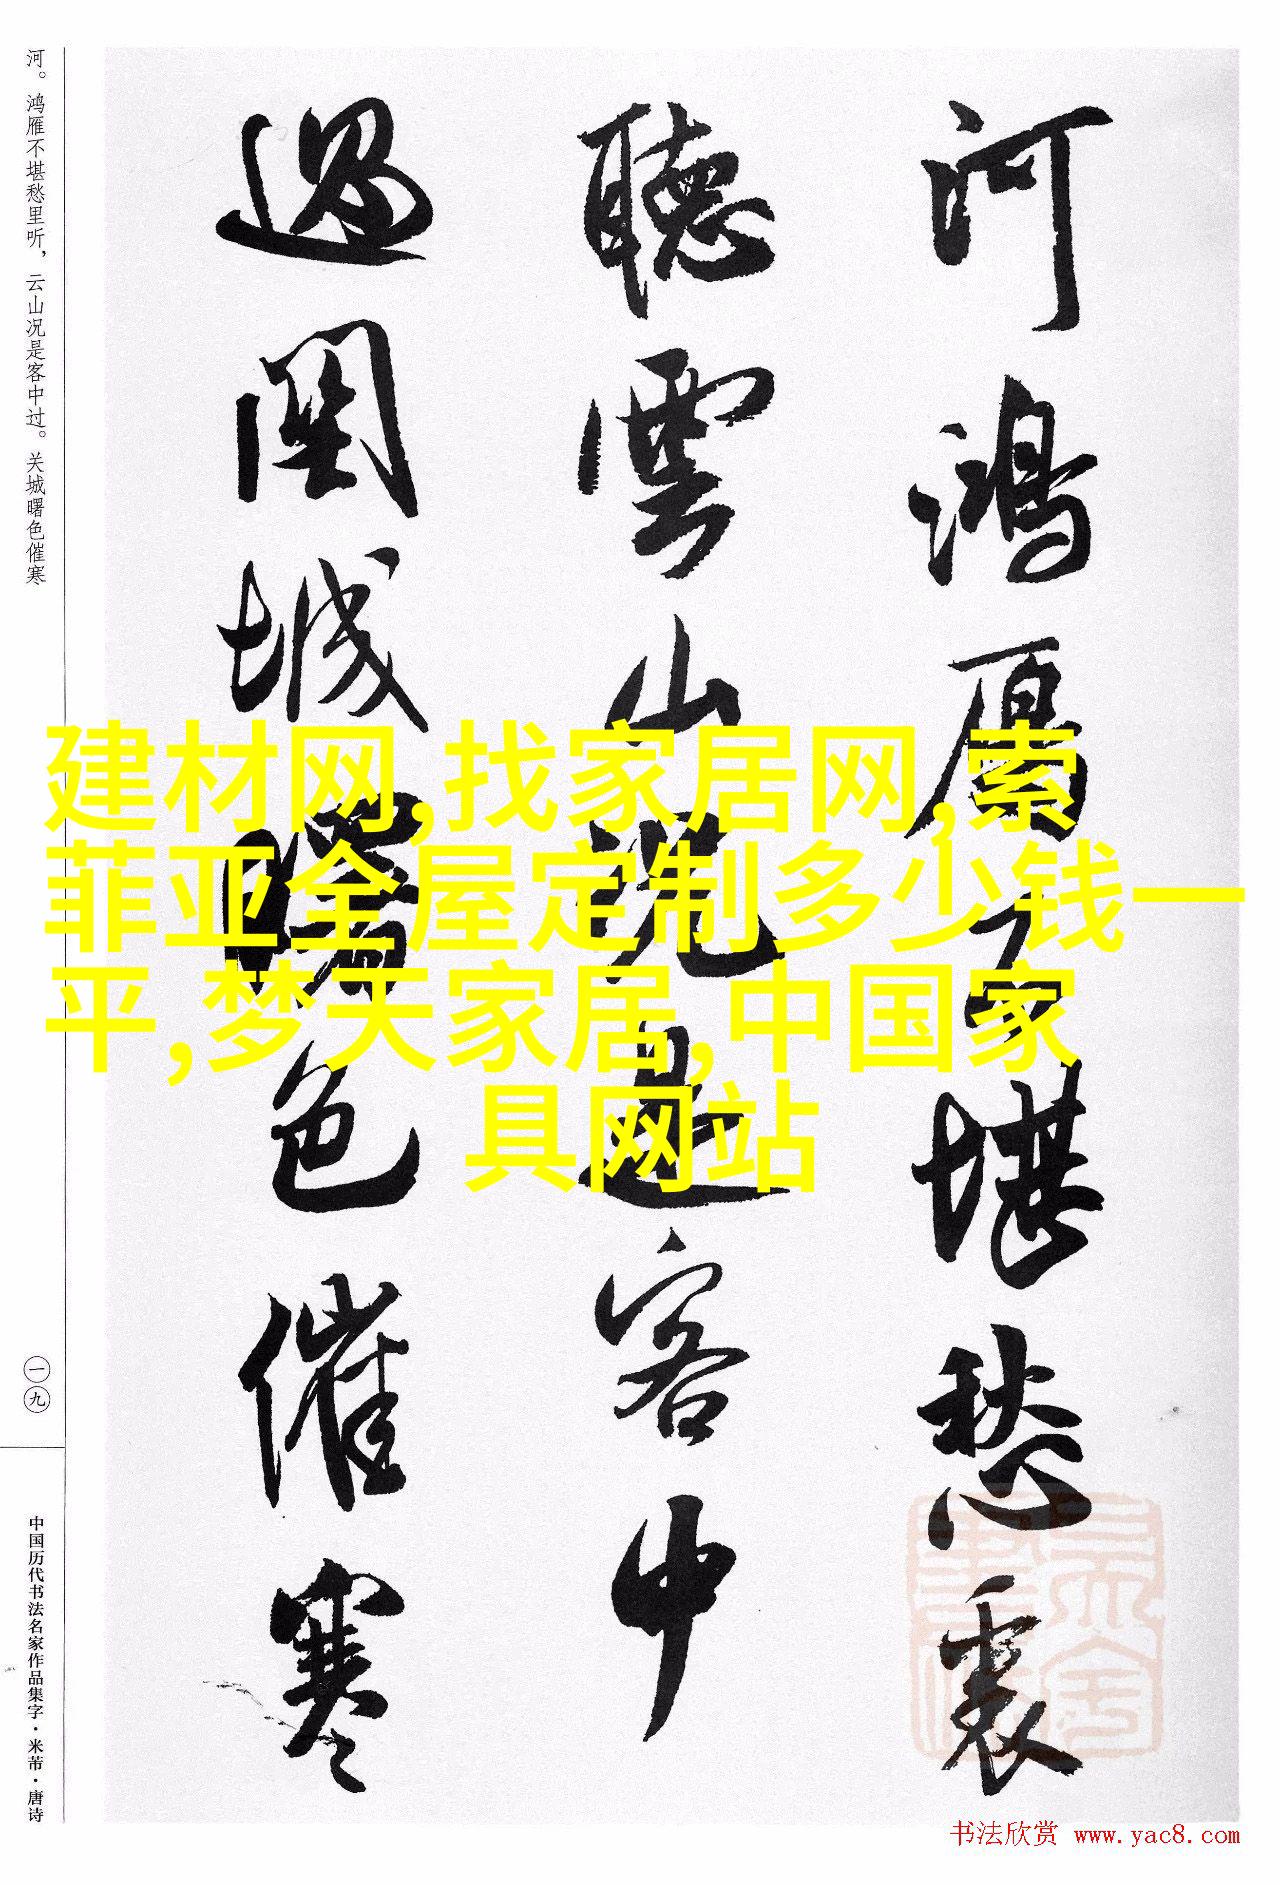 河鸿雁不堪愁裏
聽雲山况是客中
過関城曙色催寒
河。鸿雁不堪愁里听，云山况是客中过。关城曙色催寒
一九
中国历代书法名家作品集字·米芾·唐诗
建材网,找家居网,索
菲亚全屋定制多少钱一
平,梦天家居,中国家
具网站
书法欣赏 www.yac8.com